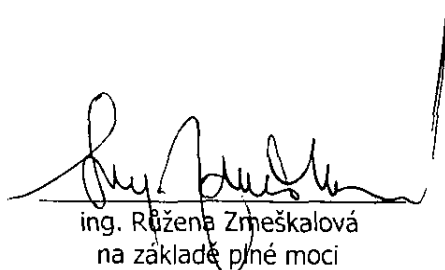 ing. Růžena Zmeškalová
na základě plné moci